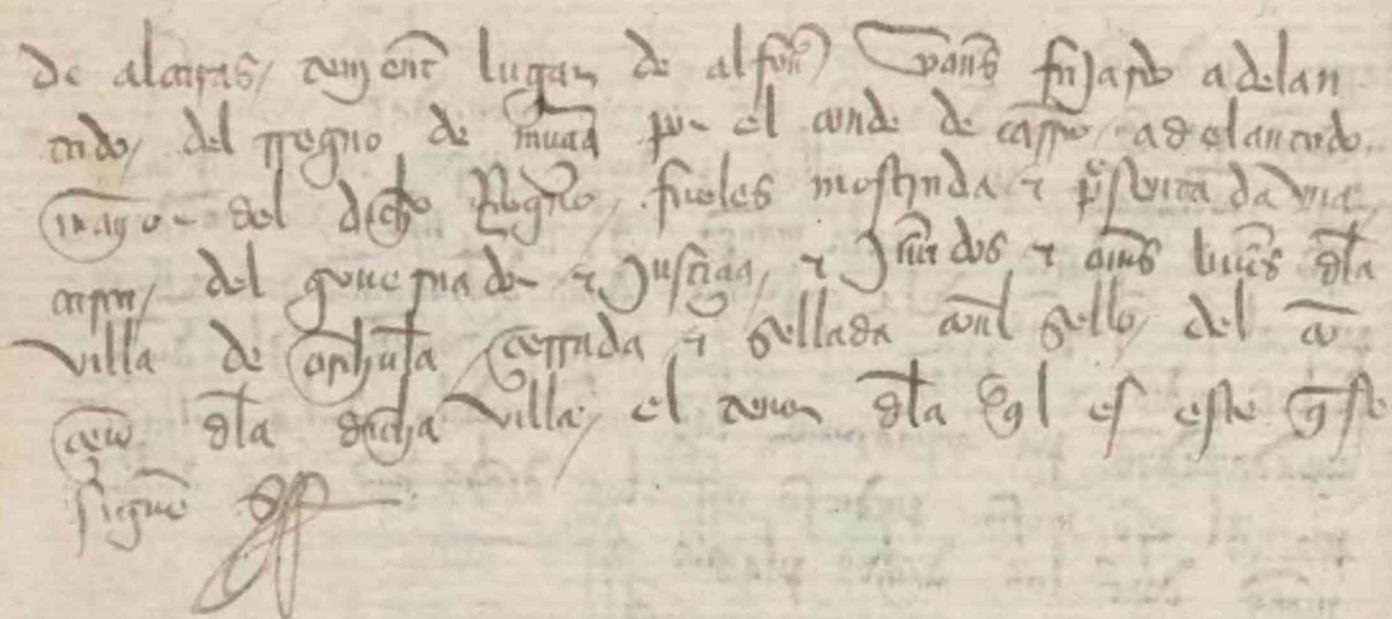 de alcaras, teniente lugar de alfon Yanes fajardo adelan
tado, del rregno de murcia por el conde de carrion, adelantado
mayor del dicho Regno, fueles mostrada e presentada una
carta, del gouernador e justiçia, e jurados e omes buenos dla
villa de orihuela, çerrada e sellada conl sello, del con
çeio dla dicha villa, el tenor dla qual es este que se
sigue